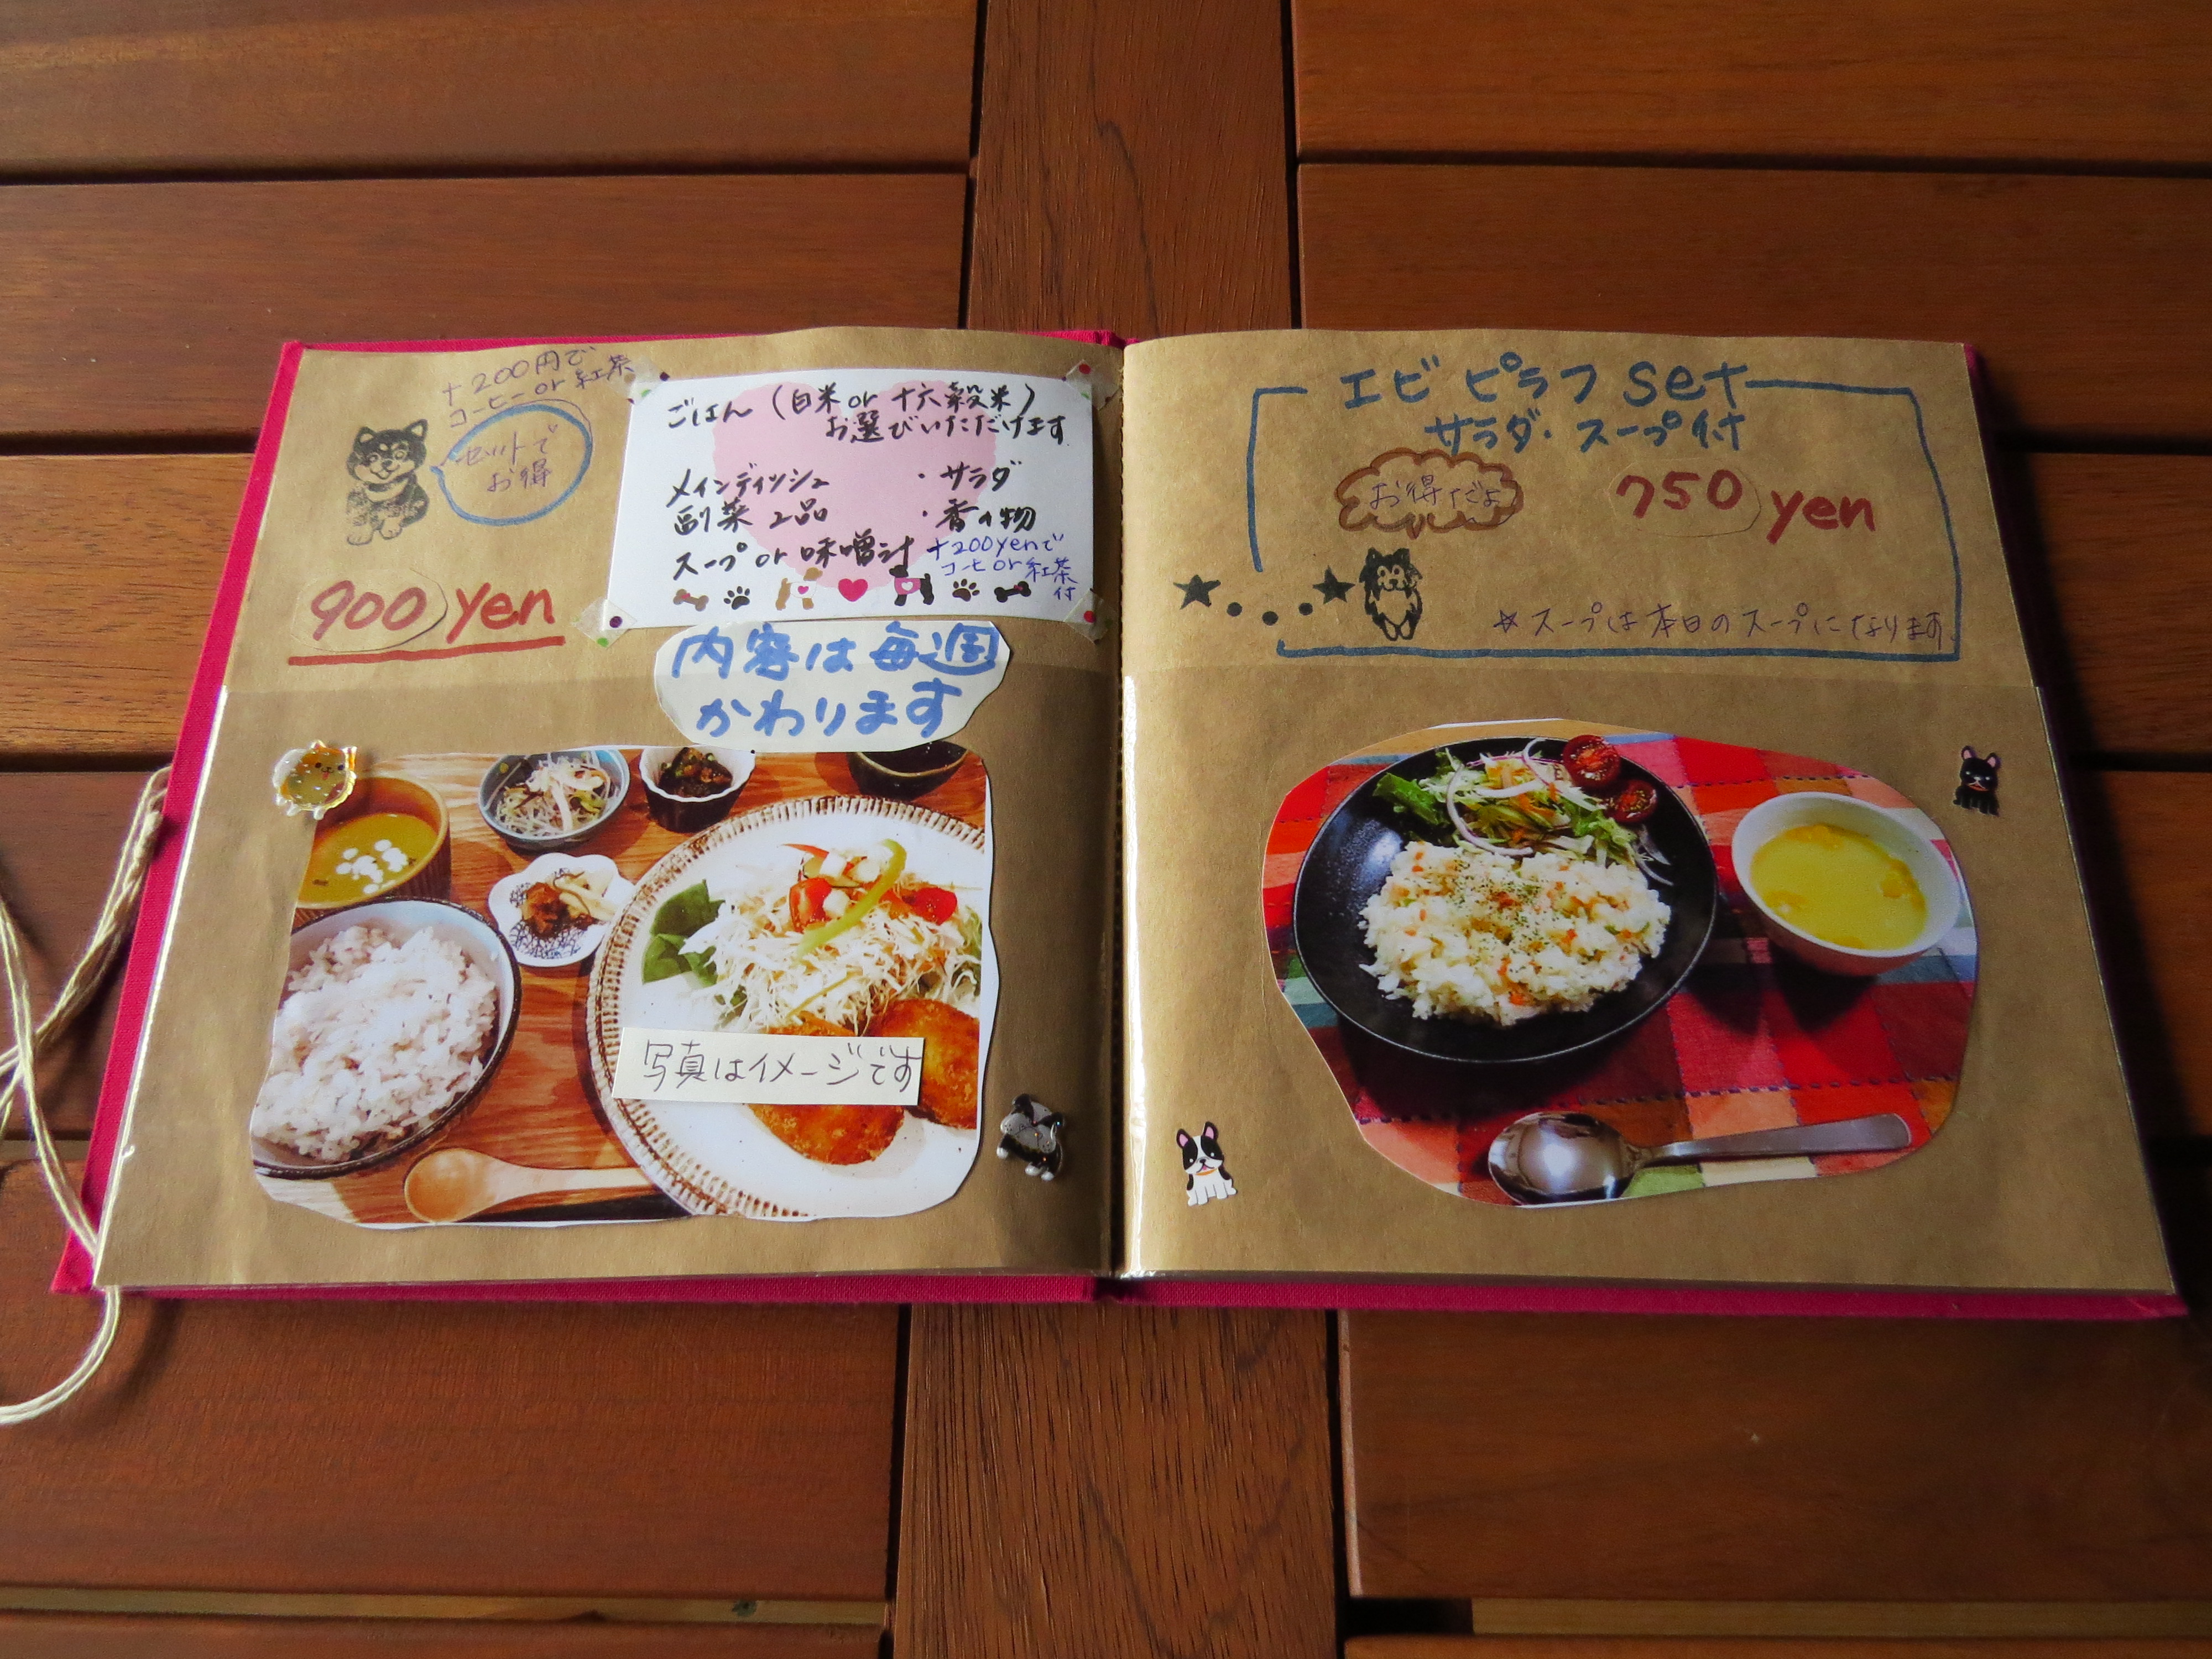 +200円で
コーヒーor紅茶
セットで
お得
900 yen
ごはん (白米 or 十六穀米)
お選びいただけます
メインディッシュ
副菜 2品
スープ or 味噌汁
・サラダ
・香の物
+200yenで
コーヒor紅茶
付
内容は毎週
かわります
写真はイメージです
エビ ピラフ set
サラダ・スープ付
お得だよ
750 yen
☆スープは本日のスープになります。